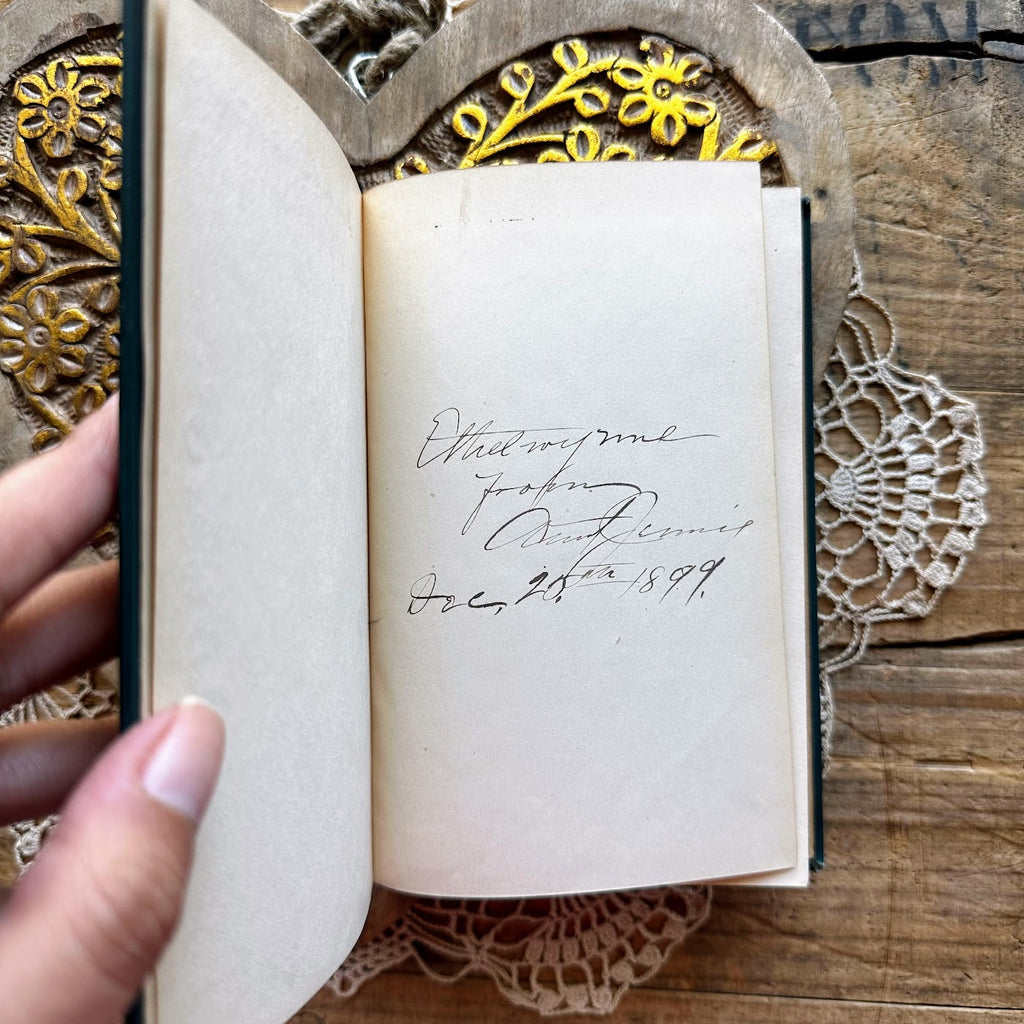 Ethelwynne
from
Aunt Jennie
Dec. 20.th 1899.